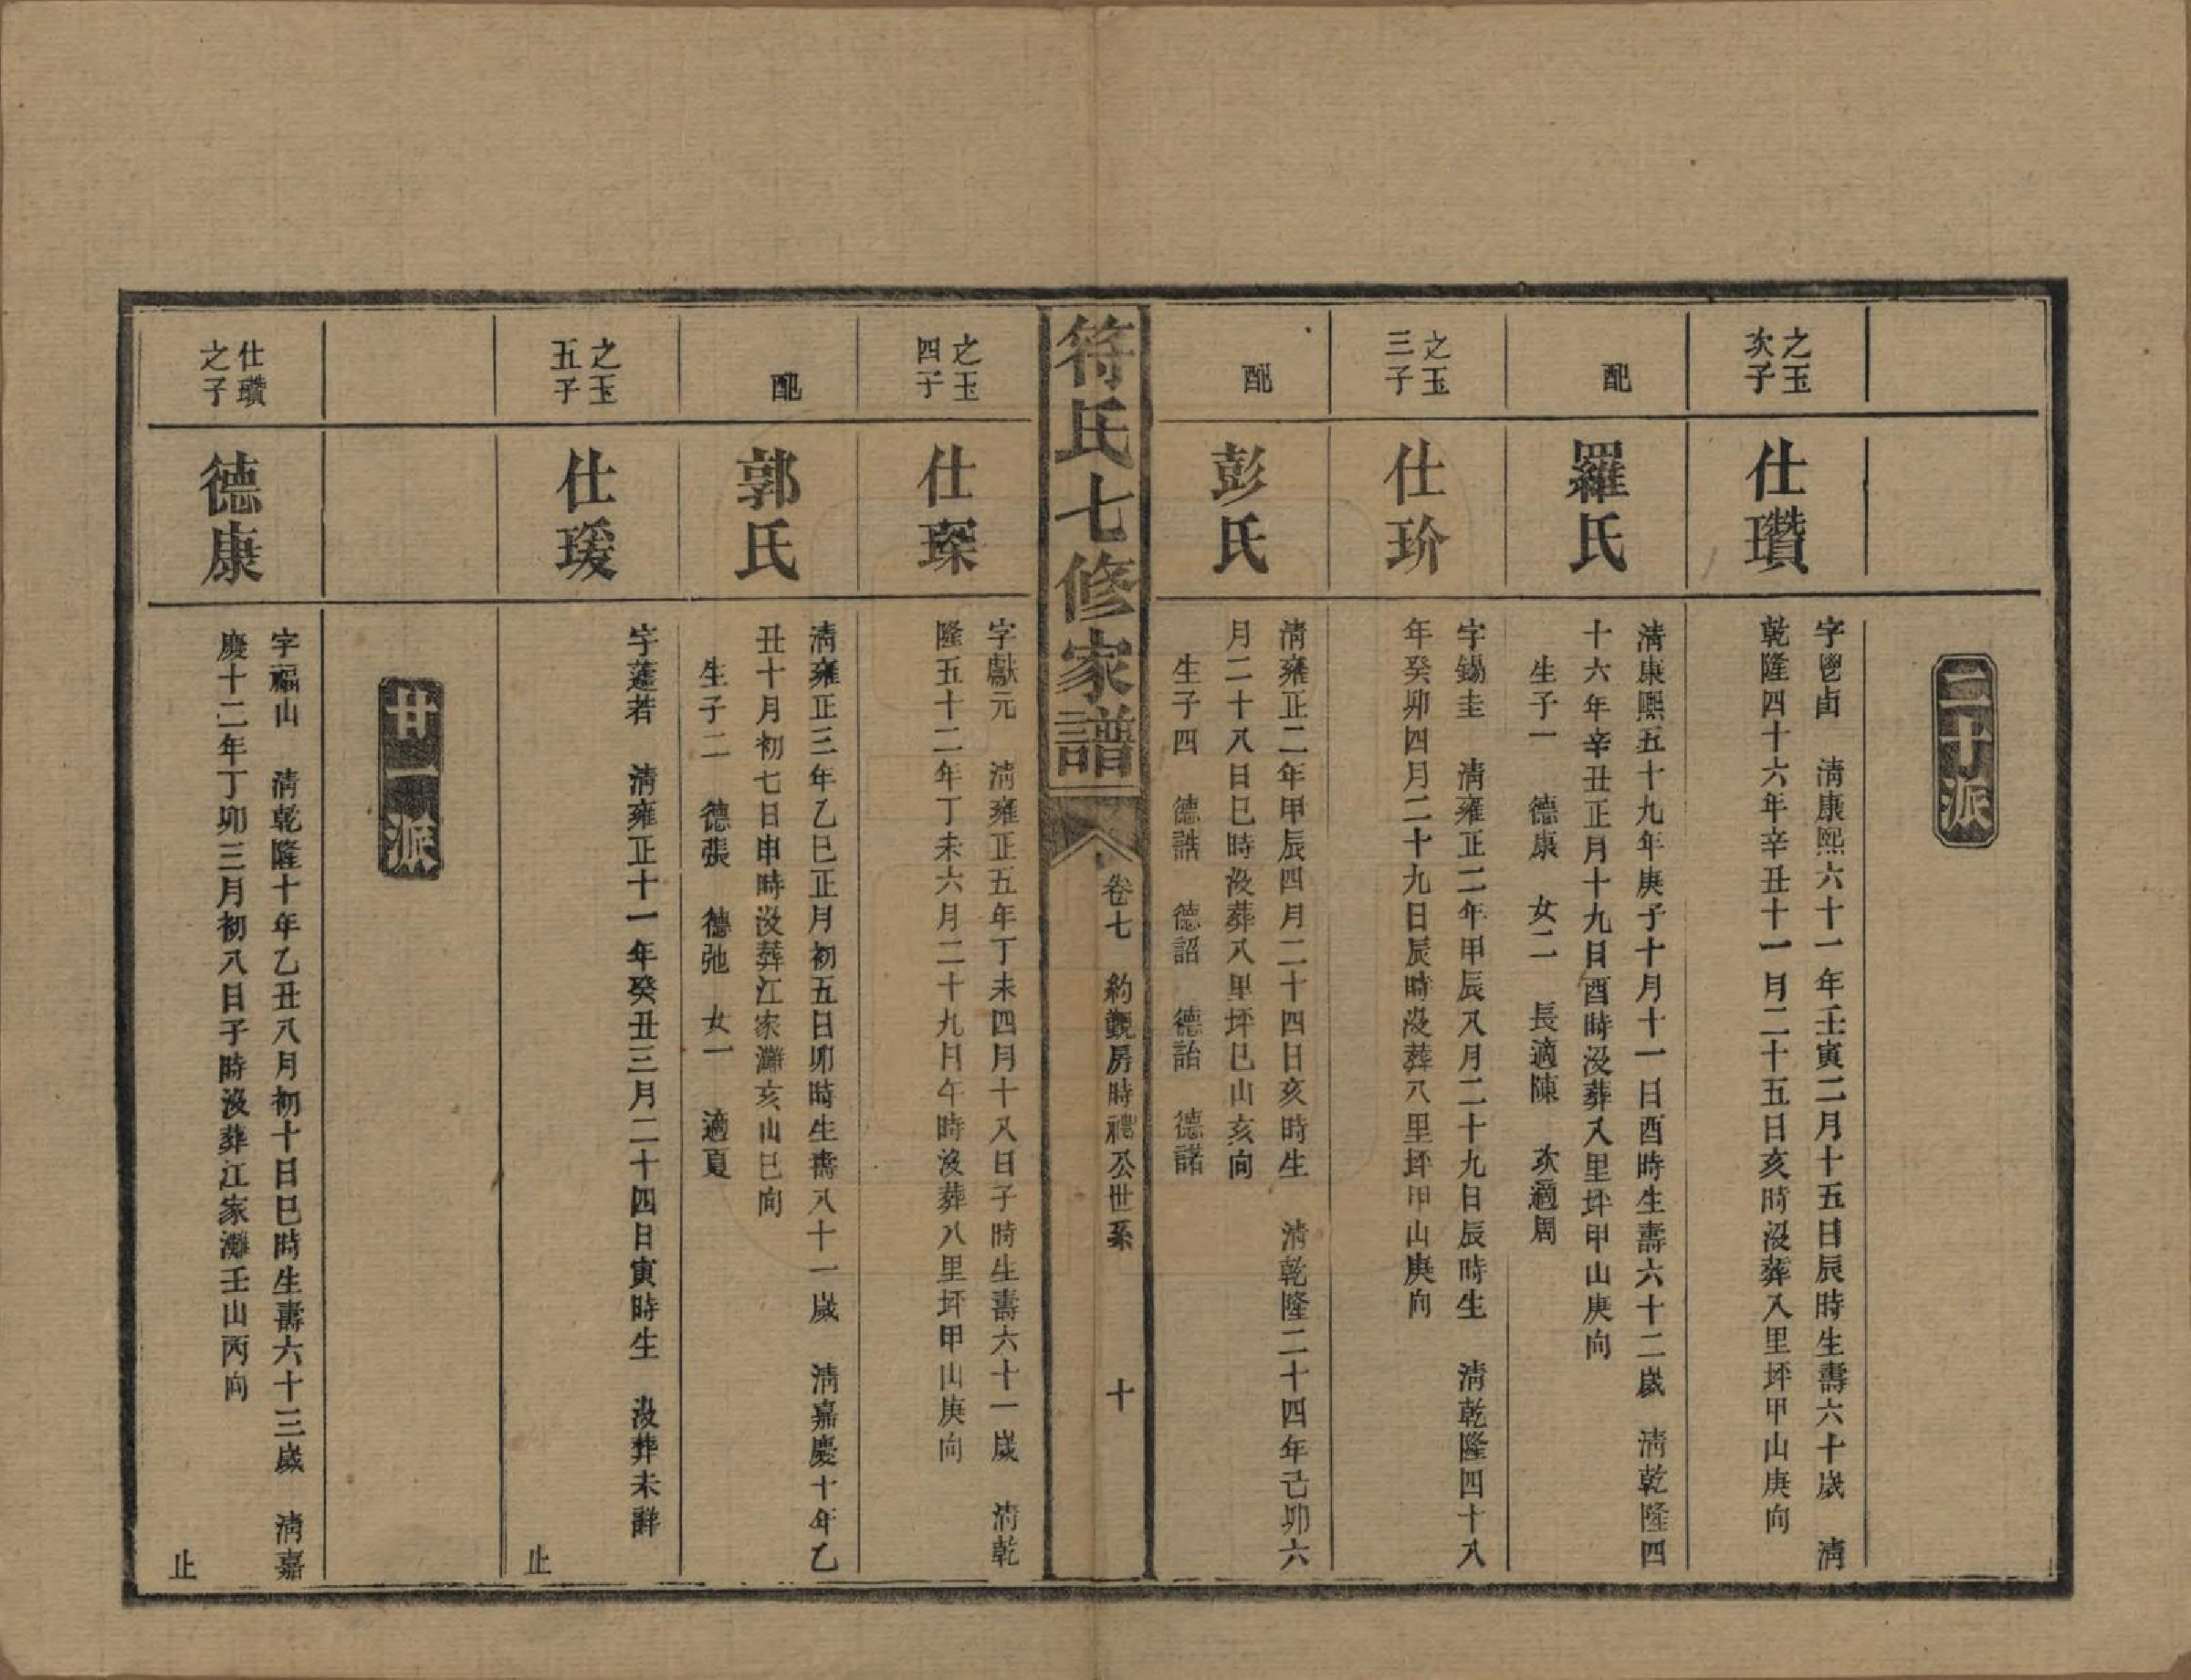 二十派
之玉
次子
仕瓚
字鬯卣　清康熙六十一年壬寅二月十五日辰時生壽六十歲　清
乾隆四十六年辛丑十一月二十五日亥時沒葬八里坪甲山庚向
配
羅氏
清康熙五十九年庚子十月十一日酉時生壽六十二歲　清乾隆四
十六年辛丑正月十九日酉時沒葬八里坪甲山庚向
生子一　德康　女二　長適陳　次適周
之玉
三子
仕玠
字錫圭　清雍正二年甲辰八月二十九日辰時生　清乾隆四十八
年癸卯四月二十九日辰時沒葬八里坪甲山庚向
配
彭氏
清雍正二年甲辰四月二十四日亥時生　清乾隆二十四年己卯六
月二十八日巳時沒葬八里坪巳山亥向
生子四　德誥　德詔　德詒　德諸
符氏七修家譜
卷七　約觀房時禮公世系　十
之玉
四子
仕琛
字獻元　清雍正五年丁未四月十八日子時生壽六十一歲　清乾
隆五十二年丁未六月二十九日午時沒葬八里坪甲山庚向
配
郭氏
清雍正三年乙巳正月初五日卯時生壽八十一歲　清嘉慶十年乙
丑十月初七日申時沒葬江家灘亥山巳向
生子二　德張　德弛　女一　適夏
之玉
五子
仕瑗
字蘧若　清雍正十一年癸丑三月二十四日寅時生　沒葬未詳
止
廿一派
仕瓚
之子
德康
字福山　清乾隆十年乙丑八月初十日巳時生壽六十三歲　清嘉
慶十二年丁卯三月初八日子時沒葬江家灘壬山丙向
止